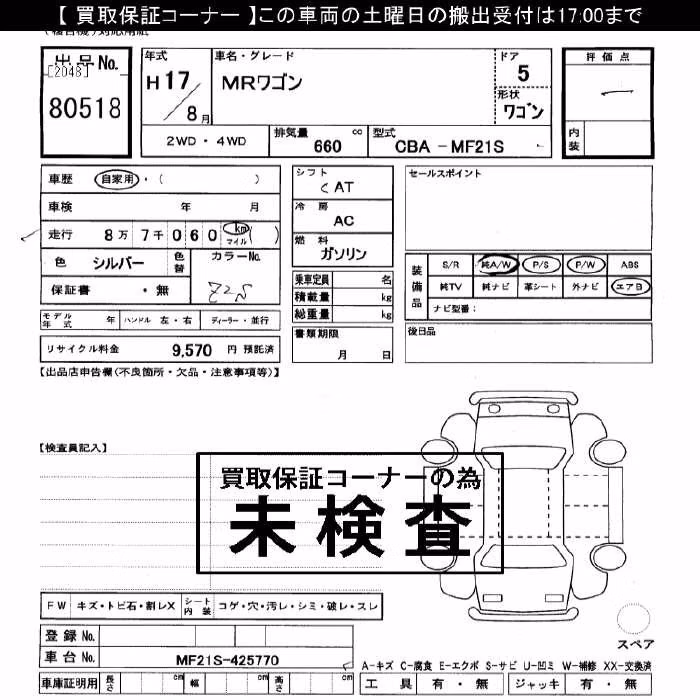 【 買取保証コーナー 】この車両の土曜日の搬出受付は17:00まで
出品No.
[2048]
80518
年式
H 17 / 8 月
車名・グレード
MRワゴン
ドア
5
形状
ワゴン
評価点
内装
2WD・4WD
排気量 cc
660
型式
CBA - MF21S
車歴 自家用・( )
車検 年 月
走行 8万 7千 0 6 0 km マイル ( )
色 シルバー 色替 カラーNo.
保証書 ・無 Z2S
モデル年式 年 ハンドル 左・右 ディーラー・並行
リサイクル料金 9,570 円 預託済
シフト
C AT
冷房
AC
燃料
ガソリン
乗車定員 名
積載量 kg
総重量 kg
書類期限
月 日
セールスポイント
装備品
S/R 純A/W P/S P/W ABS
純TV 純ナビ 革シート 外ナビ エアB
ナビ型番:
後日品
【出品店申告欄(不良箇所・欠品・注意事項等)】
【検査員記入】
買取保証コーナーの為
未検査
FW キズ・トビ石・割レX シート内装 コゲ・穴・汚レ・シミ・破レ・スレ
登録No.
車台No. MF21S-425770
車庫証明用 長さ cm 幅 cm 高さ cm
スペア
A-キズ C-腐食 E-エクボ S-サビ U-凹ミ W-補修 XX-交換済
工具 有・無 ジャッキ 有・無